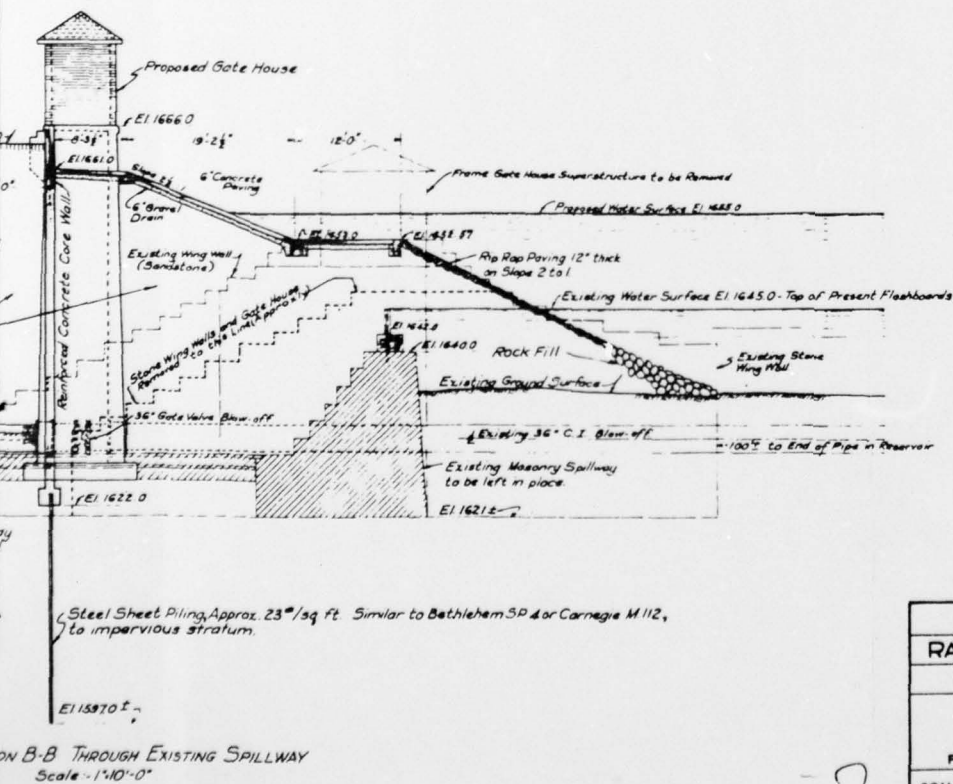 Proposed Gate House
El. 1666.0
8'-3½"
19'-2½"
12'-0"
El. 1661.0
Slope
6" Concrete
Paving
Frame Gate House Superstructure to be Removed
6" Gravel
Drain
Proposed Water Surface El. 1655.0
El. 1653.0
El. 1652.57
Existing Wing Wall
(Sandstone)
Rip Rap Paving 12" thick
on Slope 2 to 1.
Reinforced Concrete Core Wall
Stone Wing Walls and Gate House
Removed to this Line (Approx.)
Existing Water Surface El. 1645.0 - Top of Present Flashboards
El. 1642.0
El. 1640.0
Rock Fill
Existing Stone
Wing Wall
Existing Ground Surface
36" Gate Valve Blow-off
Existing 36" C.I. Blow-off
100'± to End of Pipe in Reservoir
Existing Masonry Spillway
to be left in place.
El. 1622.0
El. 1621±
Steel Sheet Piling, Approx. 23#/sq ft. Similar to Bethlehem SP 4 or Carnegie M 112,
to impervious stratum.
RA
El. 1597.0±
ON B-B THROUGH EXISTING SPILLWAY
Scale:- 1"=10'-0"